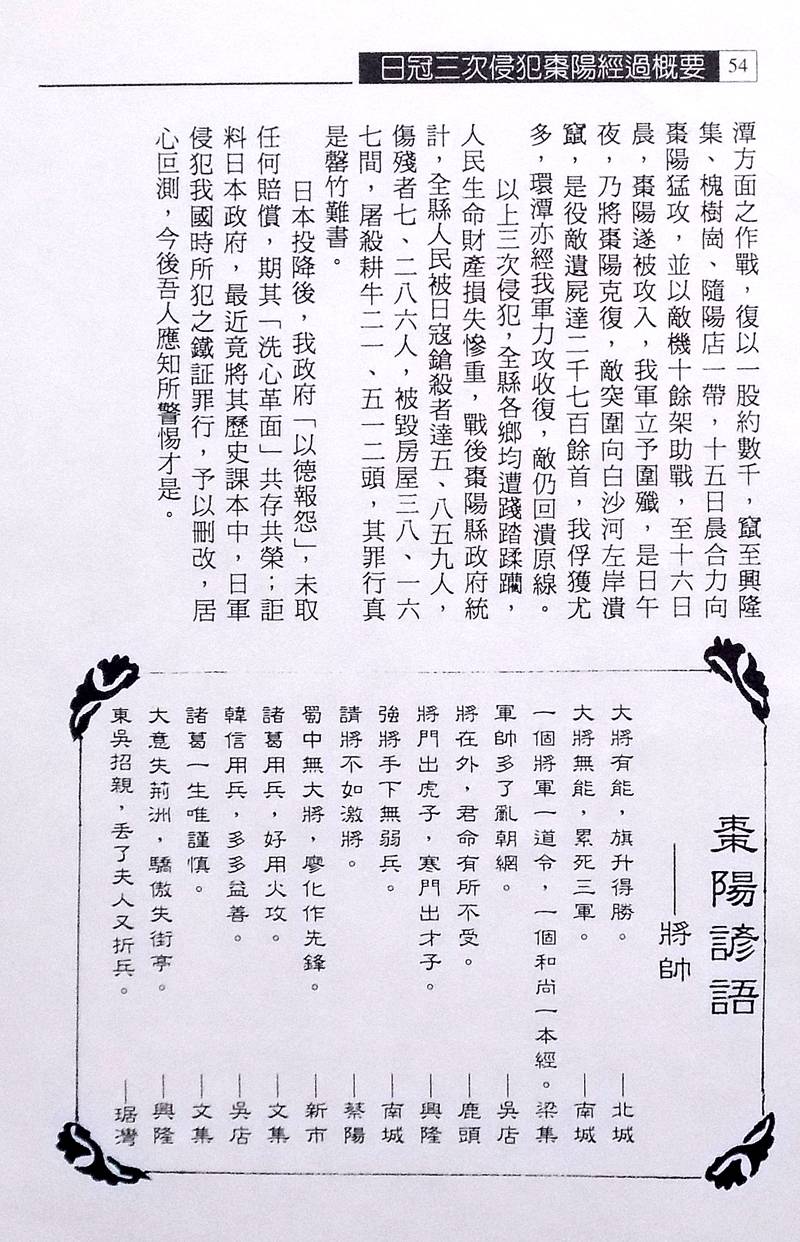 日冠三次侵犯棗陽經過概要
54
潭方面之作戰，復以一股約數千，竄至興隆
集、槐樹崗、隨陽店一帶，十五日晨合力向
棗陽猛攻，並以敵機十餘架助戰，至十六日
晨，棗陽遂被攻入，我軍立予圍殲，是日午
夜，乃將棗陽克復，敵突圍向白沙河左岸潰
竄，是役敵遺屍達二千七百餘首，我俘獲尤
多，環潭亦經我軍力攻收復，敵仍回潰原線。
以上三次侵犯，全縣各鄉均遭踐踏蹂躪，
人民生命財產損失慘重，戰後棗陽縣政府統
計，全縣人民被日寇鎗殺者達五、八五九人，
傷殘者七、二八六人，被毀房屋三八、一六
七間，屠殺耕牛二一、五一二頭，其罪行真
是罄竹難書。
日本投降後，我政府「以德報怨」，未取
任何賠償，期其「洗心革面」共存共榮；詎
料日本政府，最近竟將其歷史課本中，日軍
侵犯我國時所犯之鐵証罪行，予以刪改，居
心叵測，今後吾人應知所警惕才是。
棗陽諺語
——將帥
大將有能，旗升得勝。——北城
大將無能，累死三軍。——南城
一個將軍一道令，一個和尚一本經。梁集
軍帥多了亂朝綱。——吳店
將在外，君命有所不受。——鹿頭
將門出虎子，寒門出才子。——興隆
強將手下無弱兵。——南城
請將不如激將。——蔡陽
蜀中無大將，廖化作先鋒。——新市
諸葛用兵，好用火攻。——文集
韓信用兵，多多益善。——吳店
諸葛一生唯謹慎。——文集
大意失荊洲，驕傲失街亭。——興隆
東吳招親，丢了夫人又折兵。——琚灣